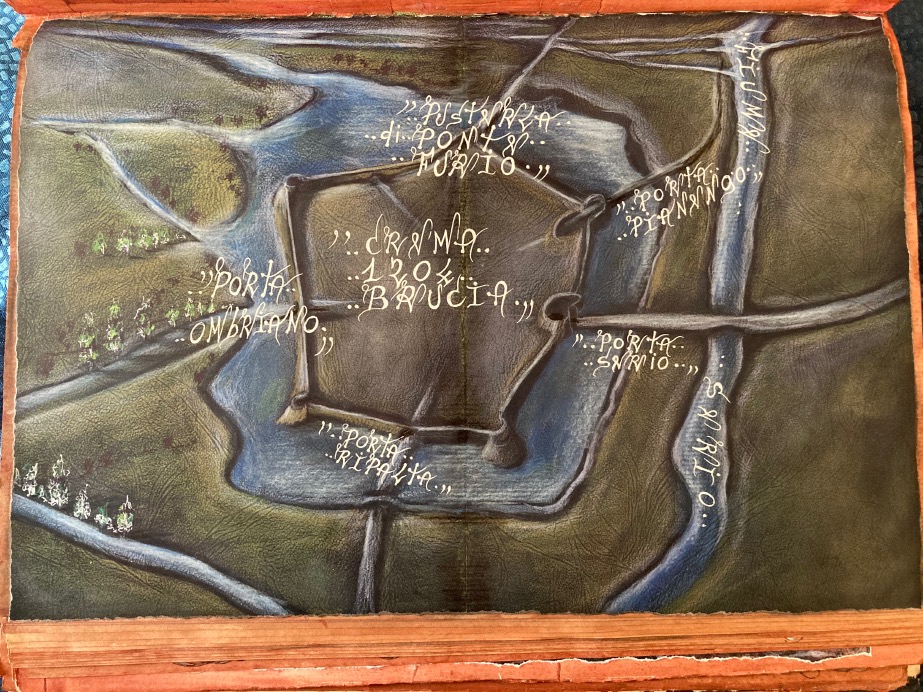 ,,..PUSTERLA..
..di..PONTE..
..FURIO..,,
,,..PORTA..
PIANENGO..,,
,,..CREMA..
..BRUCIA..,,
,,..PORTA..
..OMBRIANO..,,
,,..PORTA..
..SERIO..,,
,,..PORTA..
..RIPALTA..,,
..FIUME..
..SERIO..